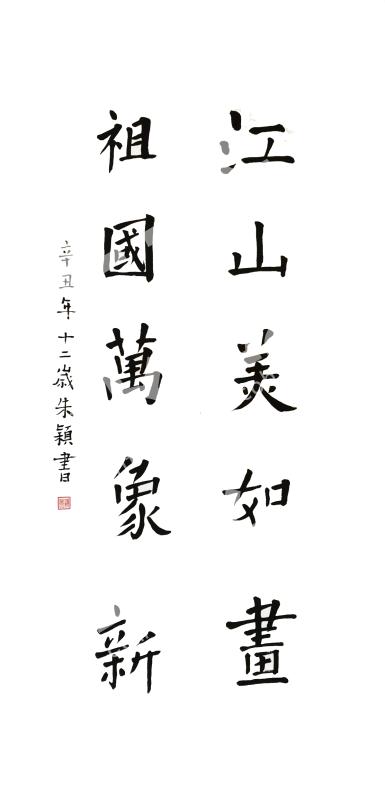 江山美如畫
祖國萬象新
辛丑年十二歲朱穎書